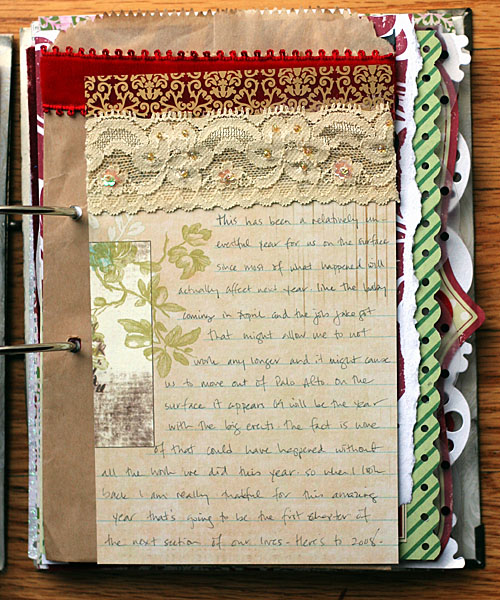 This has been a relatively un-
eventful year for us on the surface
since most of what happened will
actually affect next year. Like the baby
coming in April and the job Jake got
that might allow me to not
work any longer and it might cause
us to move out of Palo Alto. On the
surface it appears 09 will be the year
with the big events. The fact is none
of that could have happened without
all the work we did this year. So when I look
back I am really thankful for this amazing
year that's going to be the first chapter of
the next section of our lives - Here's to 2008.